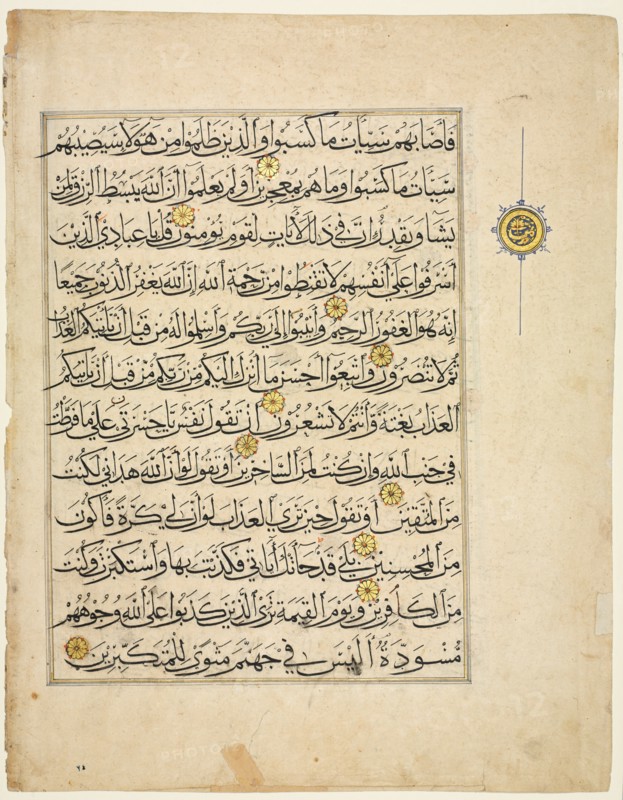 فأصابهم سيئات ما كسبوا والذين ظلموا من هؤلا سيصيبهم
سيئات ما كسبوا وما هم بمعجزين أولم يعلموا أن الله يبسط الرزق لمن
يشا ويقدر إن في ذلك لأيات لقوم يؤمنون قل يا عبادي الذين
أسرفوا على أنفسهم لا تقنطوا من رحمة الله إن الله يغفر الذنوب جميعا
إنه هو الغفور الرحيم وأنيبوا إلى ربكم وأسلموا له من قبل أن يأتيكم العذاب
ثم لا تنصرون واتبعوا أحسن ما أنزل إليكم من ربكم من قبل أن يأتيكم
العذاب بغتة وأنتم لا تشعرون أن تقول نفس يا حسرتى على ما فرطت
في جنب الله وإن كنت لمن الساخرين أو تقول لو أن الله هداني لكنت
من المتقين أو تقول حين ترى العذاب لو أن لي كرة فأكون
من المحسنين بلى قد جاتك آياتي فكذبت بها واستكبرت وكنت
من الكافرين ويوم القيمة ترى الذين كذبوا على الله وجوههم
مسودة أليس في جهنم مثوى للمتكبرين
٦٨